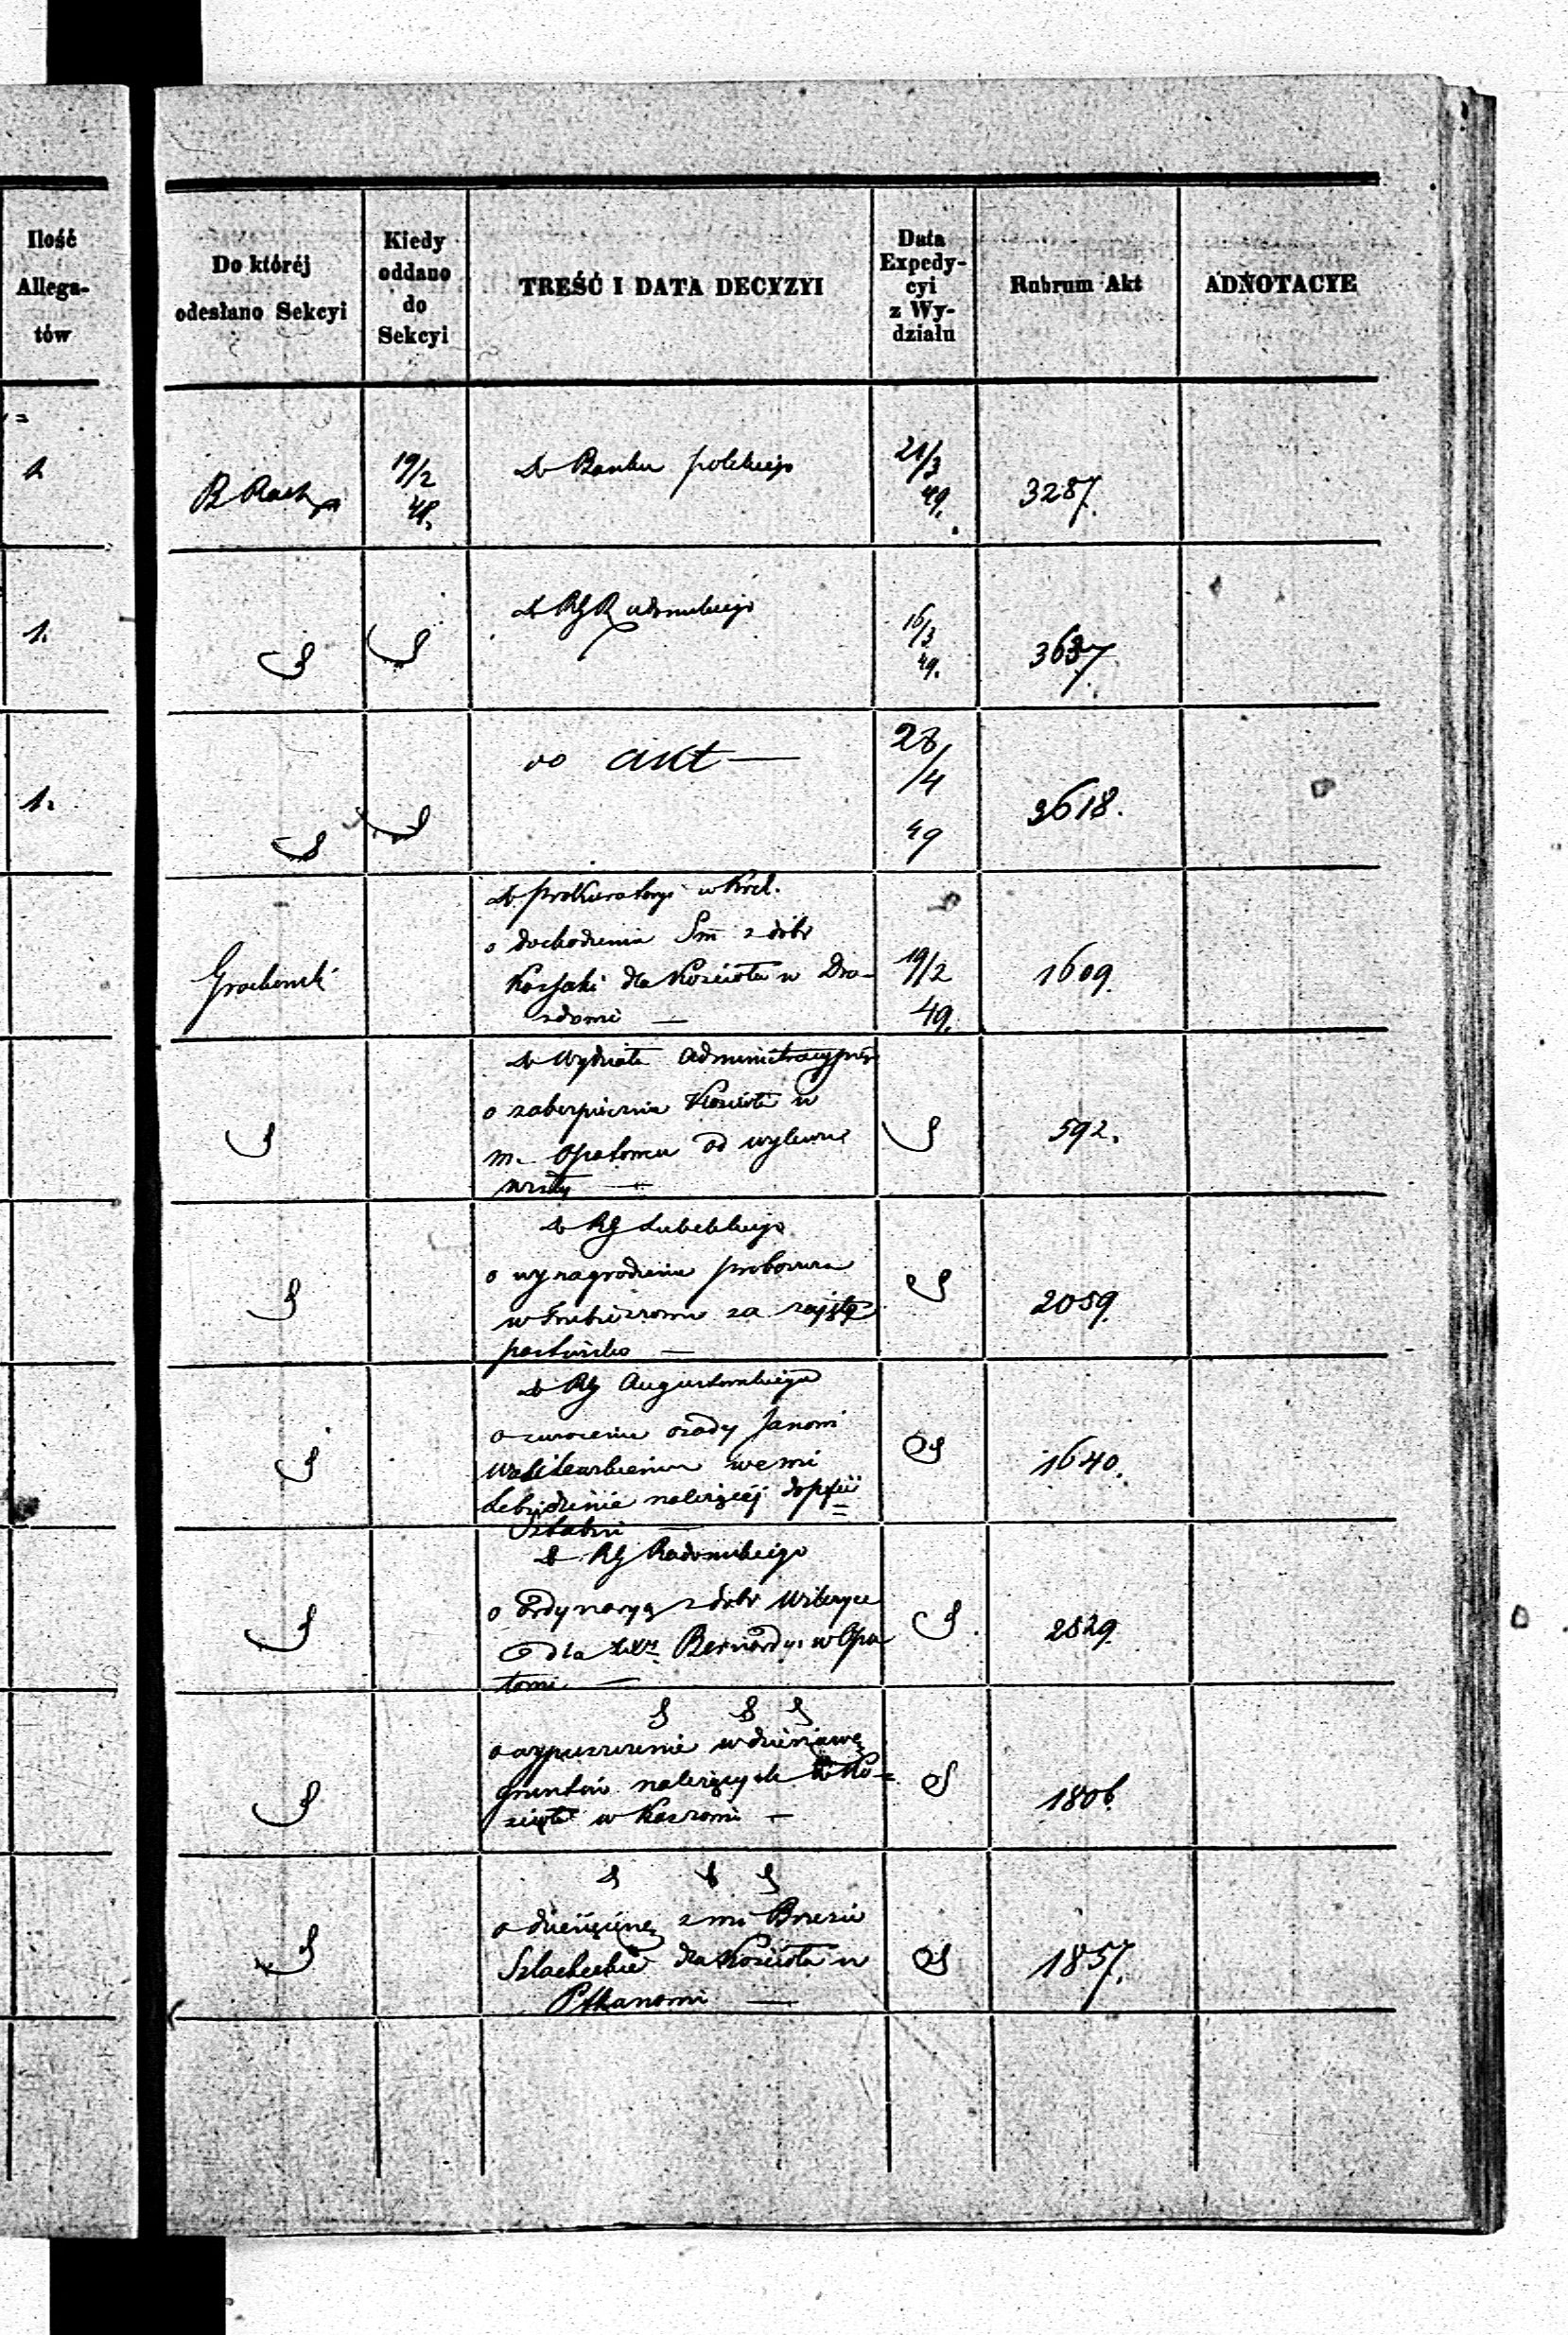 Ilość
Allega-
tów
Do któréj
odesłano Sekcyi
Kiedy
oddano
do
Sekcyi
TREŚĆ I DATA DECYZYI
Data
Expedy-
cyi
z Wy-
działu
Rubrum Akt
ADNOTACYE
19/2
48.
do Banku polskiego
21/3
49.
3287.
1.
do RG Radomskiego
16/3
49.
3637.
1.
do akt —
28/4
49
3618.
do prokuratoryi w Król.
o dochodzenie Sm z dóbr
dla Kościoła w Dro-
—
19/2
49.
1609.
do Wydziału Administracyjnego
o zabezpieczenie Kościoła w
m. Opatowcu od wylewu
Wisły —
592.
do RG Lubelskiego
o wynagrodzenie proboszcza
w Hrubieszowie za zajęte
pastwisko —
2059.
do RG Augustowskiego
osady Janowi
we wsi
należącej do
Sztabin —
1640.
do RG Radomskiego
o ordynaryą z dóbr
dla XX Bernardyn w Opa
towie —
2829.
o wypuszczenie w dzierżawę
gruntów należących do Ko-
ścioła w —
1806.
o dziesięcinę z wsi Brzezie
Szlacheckie dla Kościoła w
Ptkanowie —
1857.